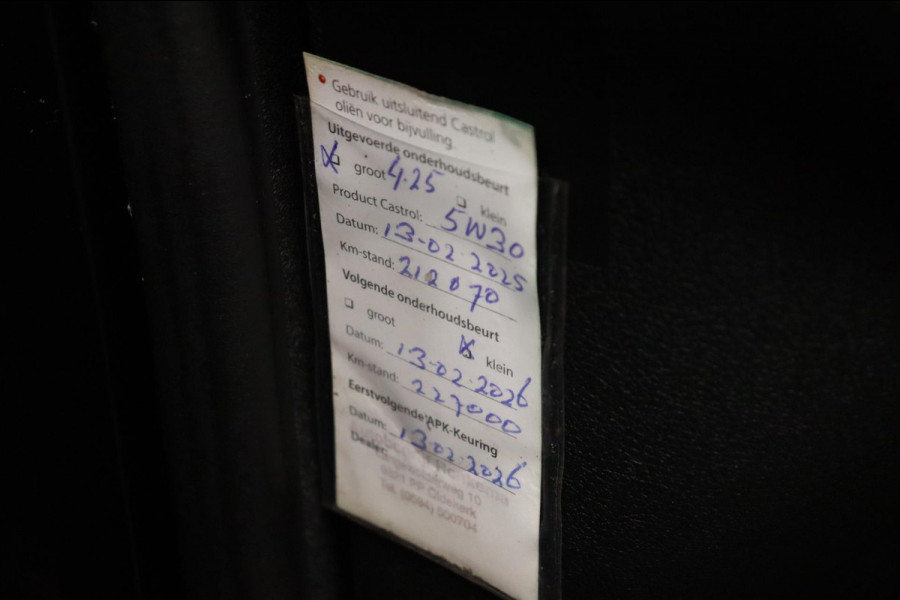 Gebruik uitsluitend Castrol
oliën voor bijvulling.
Uitgevoerde onderhoudsbeurt
groot 4.25 klein
Product Castrol: 5W30
Datum: 13-02-2025
Km-stand: 212070
Volgende onderhoudsbeurt
groot klein
Datum: 13-02-2026
Km-stand: 227000
Eerstvolgende APK-Keuring
Datum: 13-02-2026
Dealer:
10
PP Oldekerk
Tel. (0594)